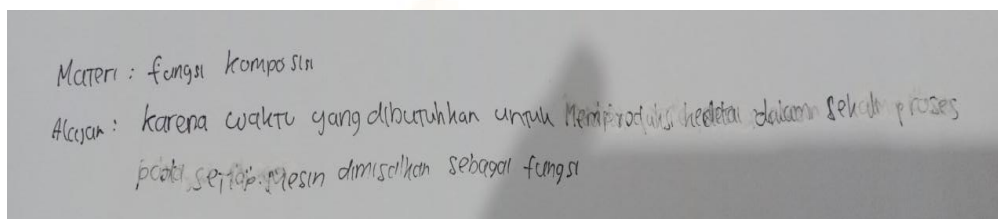 Materi : fungsi komposisi
Alasan : karena waktu yang dibutuhkan untuk Memproduksi kedelai dalam sekali proses
pada setiap mesin dimisalkan sebagai fungsi